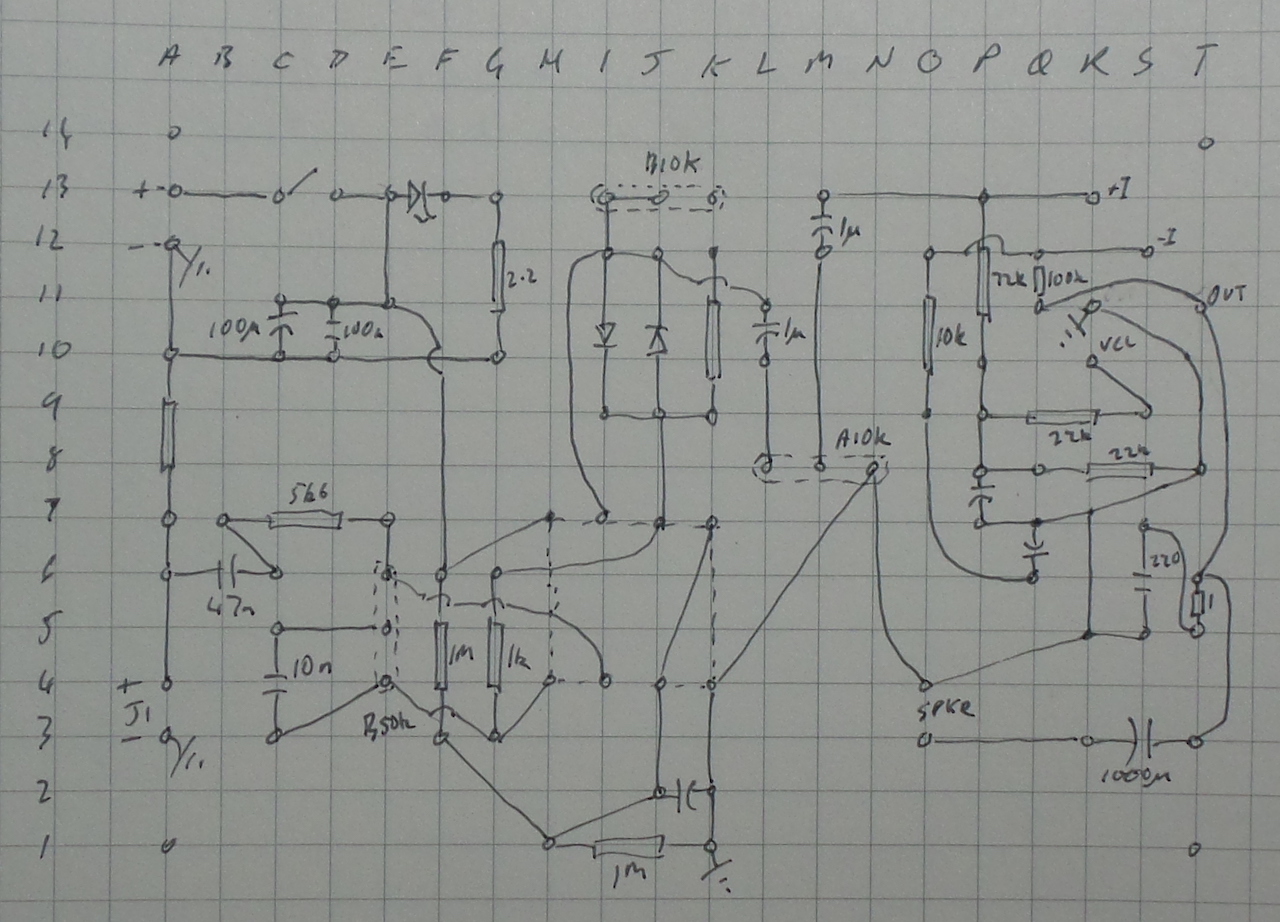 A B C D E F G H I J K L M N O P Q R S T
14
B10K
13 + +I
12 - 1µ -I
2.2 22k 100k
11 OUT
100µ 100n 1µ 10k
10 VCC
9
A10k 22k
8 22k
5k6
7
6 220
47n 1
5
10n 1M 1k
4 +
J1 SPKR
B50k
3 -
1000µ
2
1
1M